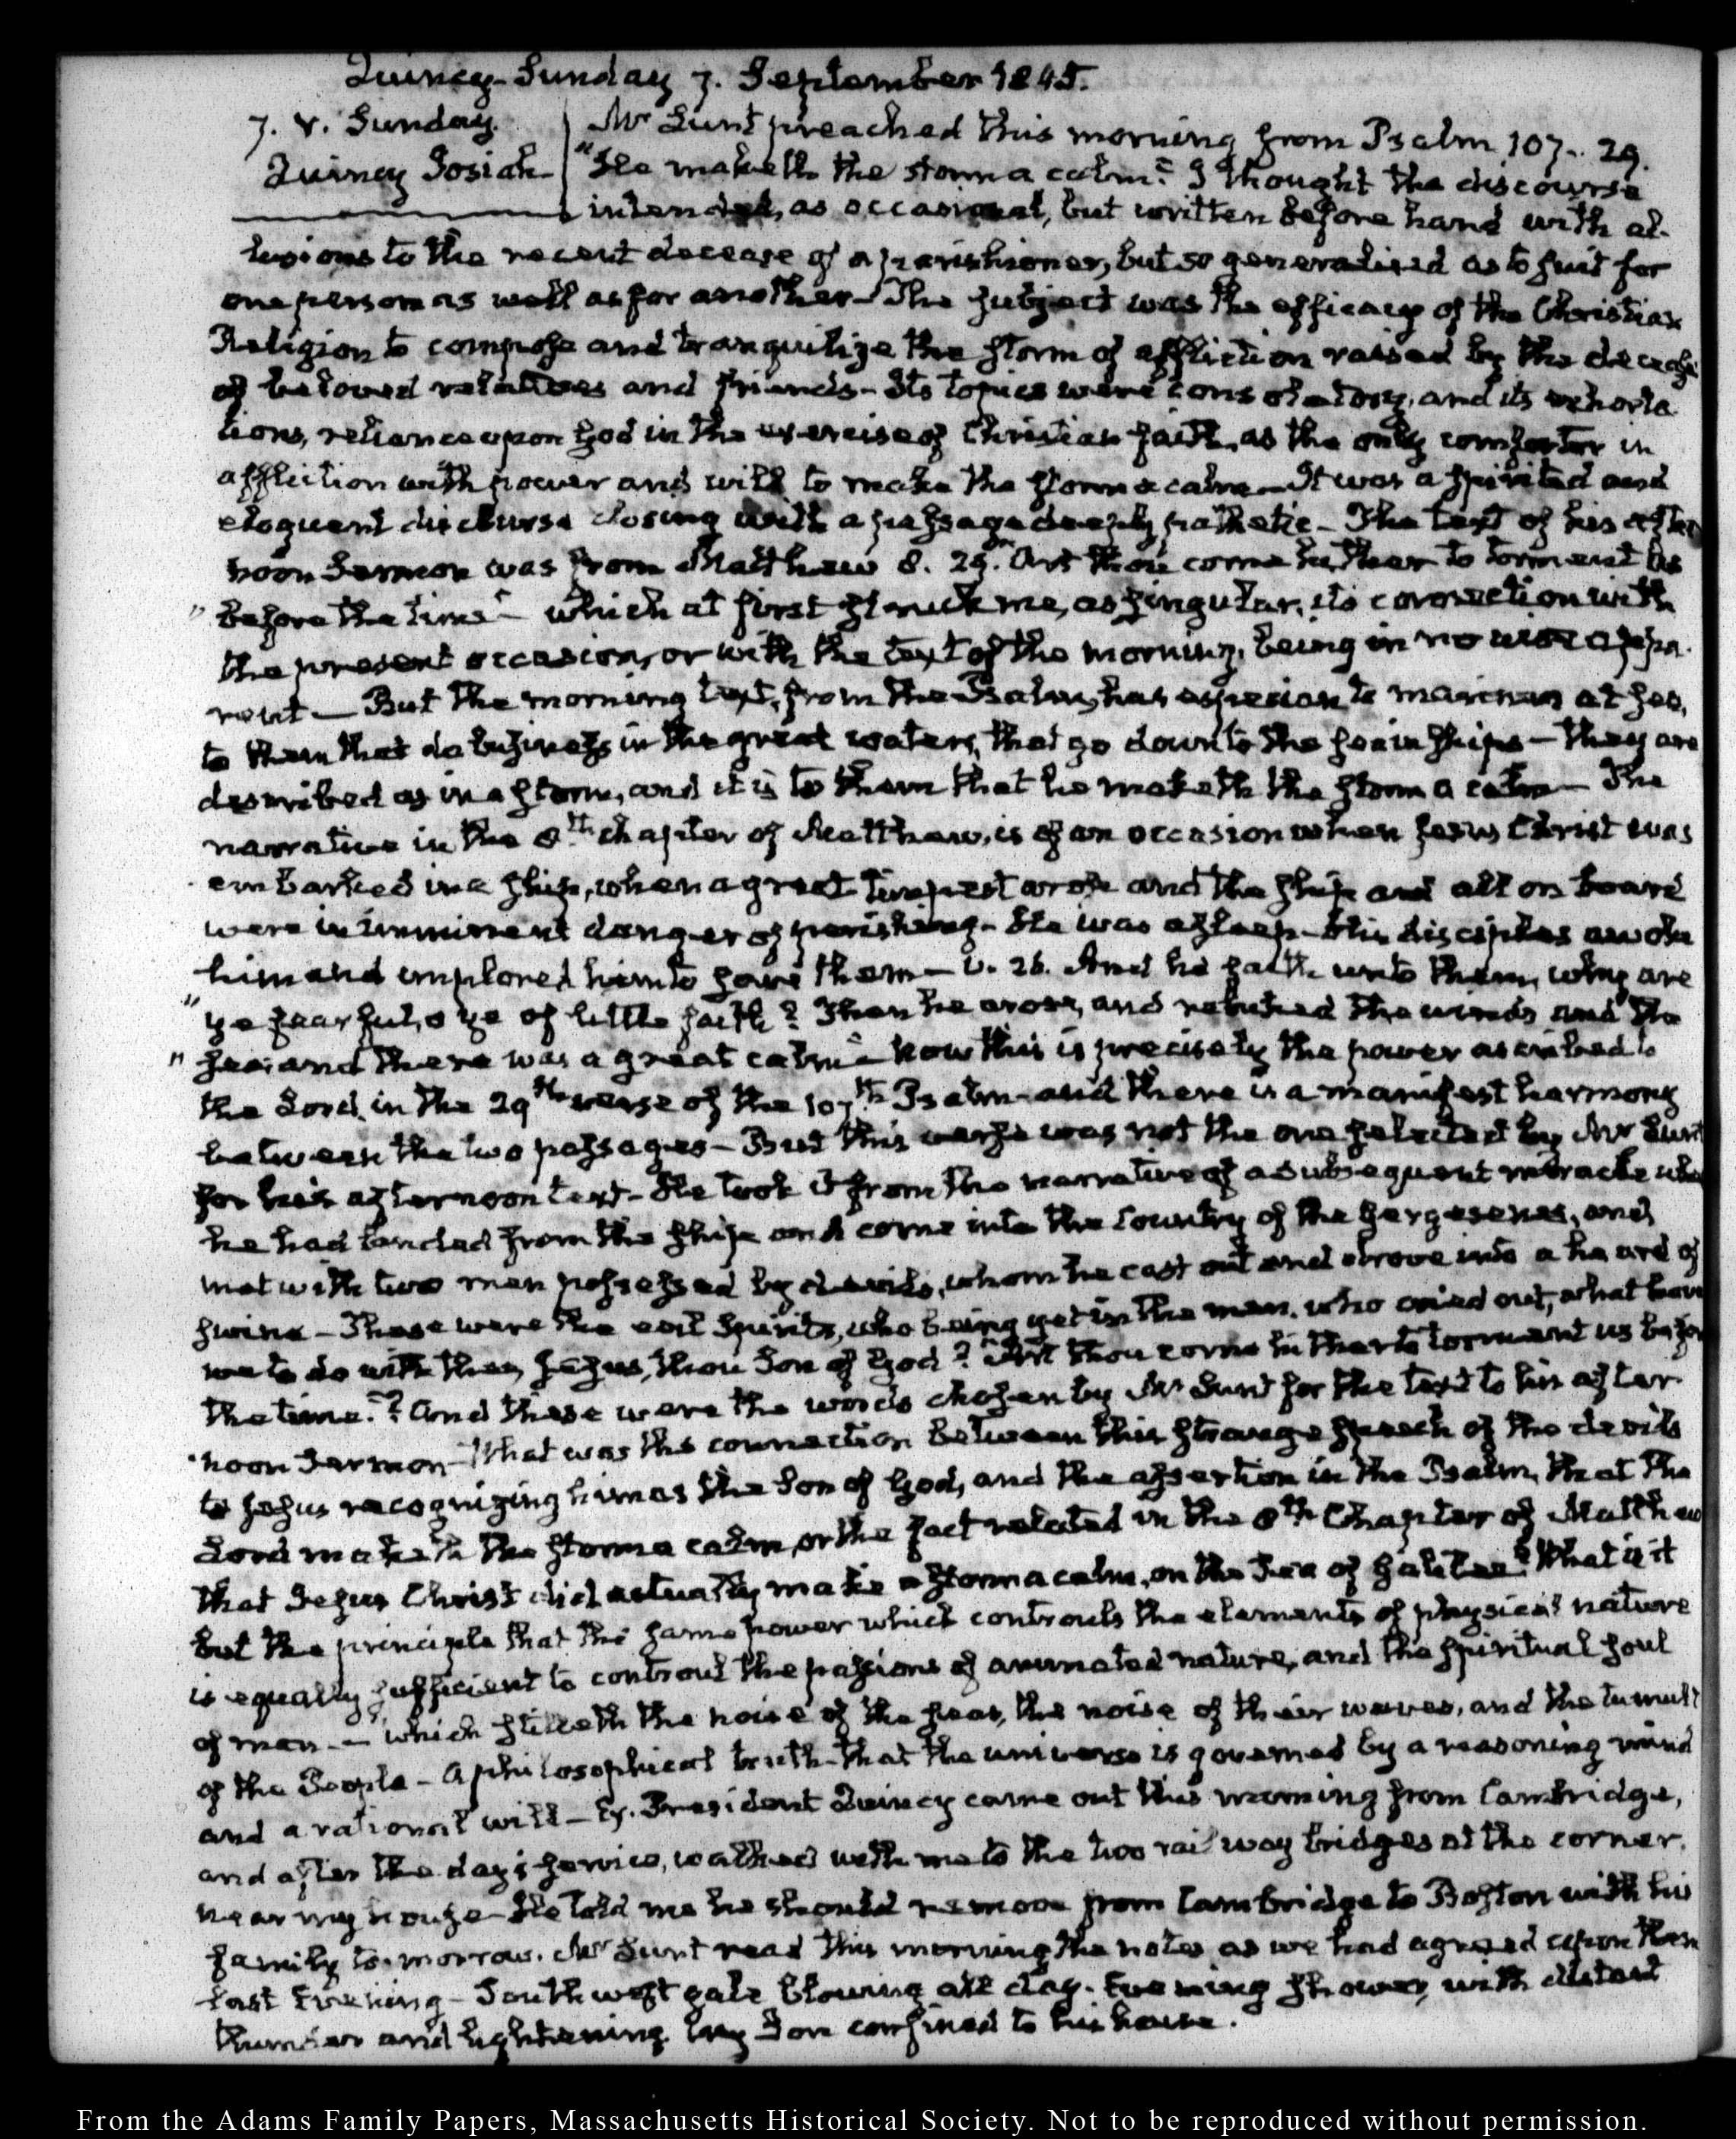 Quincy - Sunday 7. September 1845.
7. V. Sunday.
Quincy Josiah
Mr Lunt preached this morning from Psalm 107. 29.
"He maketh the storm a calm." I thought the discourse
intended, as occasional, but written before hand with al-
lusions to the recent decease of a parishioner, but so generalized as to suit for
one person as well as for another - The subject was the efficacy of the Christian
Religion to compose and tranquilize the storm of affliction raised by the decease
of beloved relatives and friends - Its topics were consolatory, and its exhorta-
tions, reliance upon God in the exercise of Christian faith, as the only comforter in
affliction with power and will to make the storm a calm - It was a spirited and
eloquent discourse closing with a passage deeply pathetic - The text of his after
noon Sermon was from Matthew 8. 29. "Art thou come hither to torment us
" before the time" - which at first struck me, as singular, its connection with
the present occasion, or with the text of the morning, being in no wise appa-
rent - But the morning text, from the Psalm, has especial to at sea,
to them that do business in the great waters, that go down to the sea in ships - they are
described as in a storm, and it is to them that he maketh the storm a calm - The
narrative in the 8th chapter of Matthew, is of an occasion when Jesus Christ was
embarked in a ship, when a great tempest arose and the ship and all on board
were in imminent danger of perishing - He was asleep - His disciples awoke
him and implored him to save them - v. 26. And he saith unto them, why are
" ye fearful, o ye of little faith? Then he arose, and rebuked the winds and the
" sea; and there was a great calm" - now this is precisely the power ascribed to
the Lord in the 29th verse of the 107th Psalm - and there is a manifest harmony
between the two passages - But this verse was not the one selected by Mr Lunt
for his afternoon text - He took it from the narrative of a subsequent miracle when
he had landed from the ship and come into the Country of the Gergesenes, and
met with two men possessed by devils, whom he cast out and drove into a heard of
swine - These were the evil Spirits, who being yet in the men, who cried out, what have
we to do with thee, Jesus, thou Son of God? "Art thou come hither to torment us before
the time."? And these were the words chosen by Mr Lunt for the text to his after-
noon Sermon - What was the connection between this strange speech of the devils
to Jesus recognizing him as the Son of God, and the assertion in the Psalm, that the
Lord maketh the storm a calm, or the fact related in the 8th Chapter of Matthew
that Jesus Christ did actually make a storm a calm, on the Sea of Galilee? What is it
but the principle that the same power which controuls the elements of physical nature
is equally sufficient to controul the passions of animated nature, and the spiritual soul
of man - " which stilleth the noise of the seas, the noise of their waves, and the tumult
of the People - A philosophical truth - that the universe is governed by a reasoning mind
and a rational will - Ex. President Quincy came out this morning from Cambridge,
and after the day's service, walked with me to the two railway bridges at the corner
near my house - He told me he should remove from Cambridge to Boston with his
family to-morrow. Mr Lunt read this morning the notes as we had agreed upon them
last Evening - South west gale blowing all day. Evening shower, with distant
thunder and lightening. My Son confined to his house.
From the Adams Family Papers, Massachusetts Historical Society. Not to be reproduced without permission.